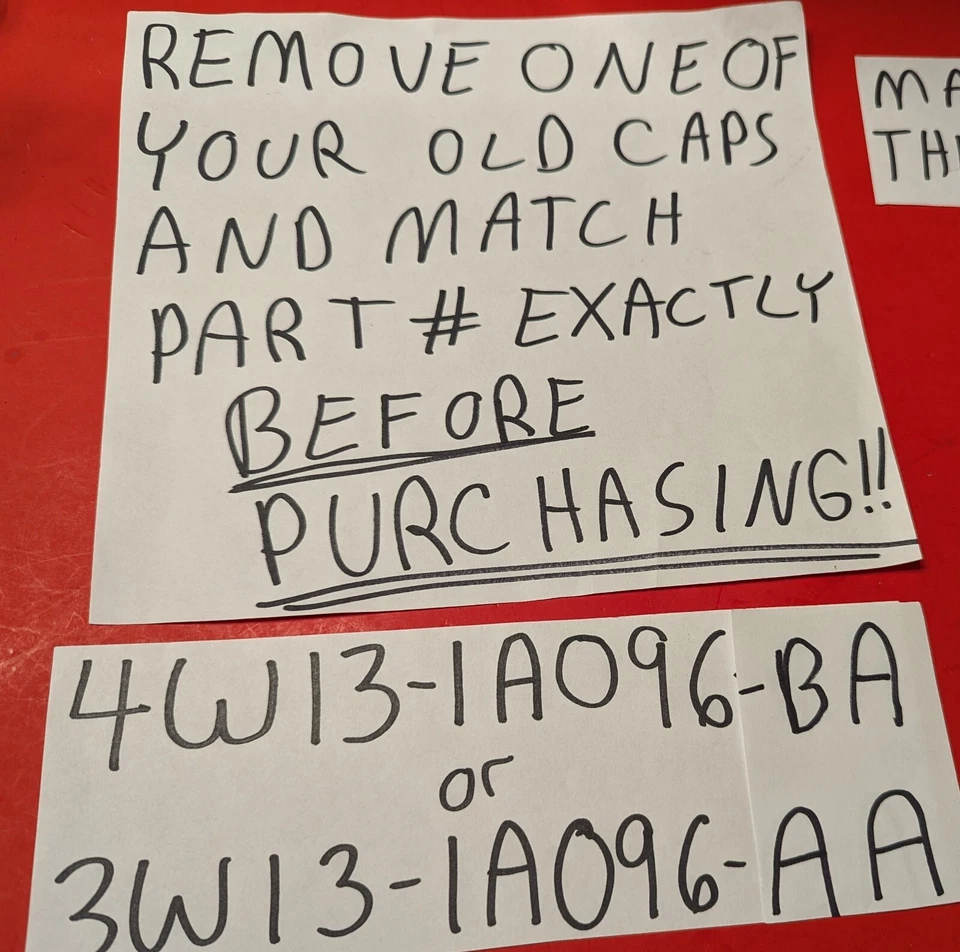 REMOVE ONE OF
YOUR OLD CAPS
AND MATCH
PART # EXACTLY
BEFORE
PURCHASING!!
4W13-1A096-BA
or
3W13-1A096-AA